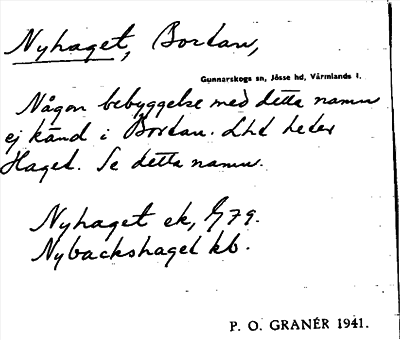 Nyhaget, Bordan,
Gunnarskogs sn, Jösse hd, Värmlands l.
Någon bebyggelse med detta namn
ej känd i Bordan. Lht heter
Haget. Se detta namn.
Nyhaget ek, G79.
Nybackshaget kb.
P. O. GRANÉR 1941.